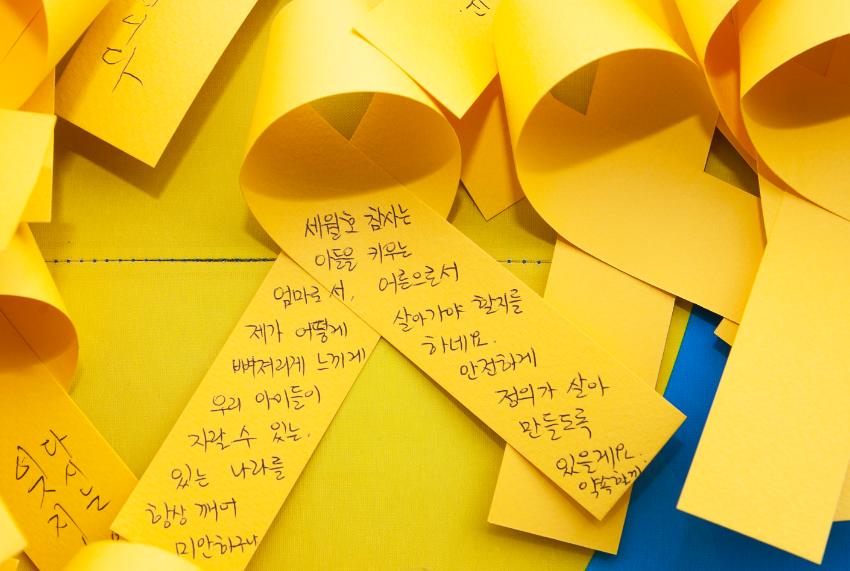 니다
세월호 참사는
아들을 키우는
엄마로서, 어른으로서
제가 어떻게 살아가야 할지를
뼈져리게 느끼게 하네요.
우리 아이들이 안전하게
자랄 수 있는, 정의가 살아
있는 나라를 만들도록
항상 깨어 있을게요.
미안하구나 약속할께
다시는